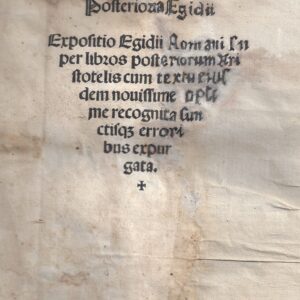 Posteriora Egidii
Expositio Egidii Romani Su
per libros posteriorum Ari
stotelis cum textu eius
dem nouissime opti
me recognita cun
ctisqz errori
bus expur
gata.